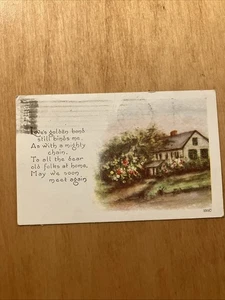 Love's golden band
still binds me.
As with a mighty
chain.
To all the dear
old folks at home,
May we soon
meet again